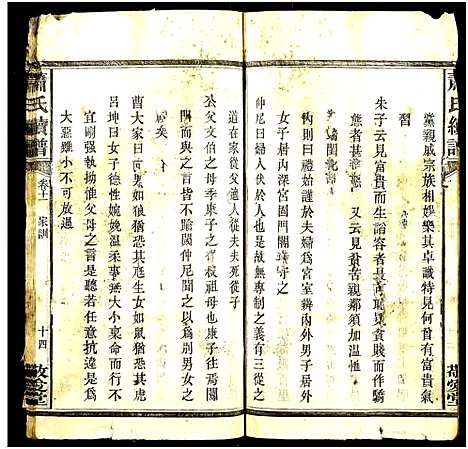 蕭氏續譜
黨親戚宗族相娛樂其卓識特見何嘗有富貴氣
習
朱子云見富貴而生諂容者最可恥見貧賤而作驕
態者甚 又云見貧苦親鄰須加溫恤
閨範
內則曰禮始謹於夫婦為宮室辨內外男子居外
女子居內深宮固門閽寺守之
仲尼曰婦人伏於人也是故無專制之義有三從之
道在家從父適人從夫夫死從子
公父文伯之母季康子之從祖母也康子往焉
門而與之言皆不踰閾仲尼聞之以為別男女之
禮矣
曹大家曰生男如狼猶恐其尪生女如鼠猶恐其虎
呂坤曰女子德性婉娩溫柔事無大小稟命而行不
宜剛強執拗惟父母之言是聽若任意抗違是為
大惡雖小不可放過
蕭氏續譜
卷十一
家訓
十四
敬愛堂
敬愛堂